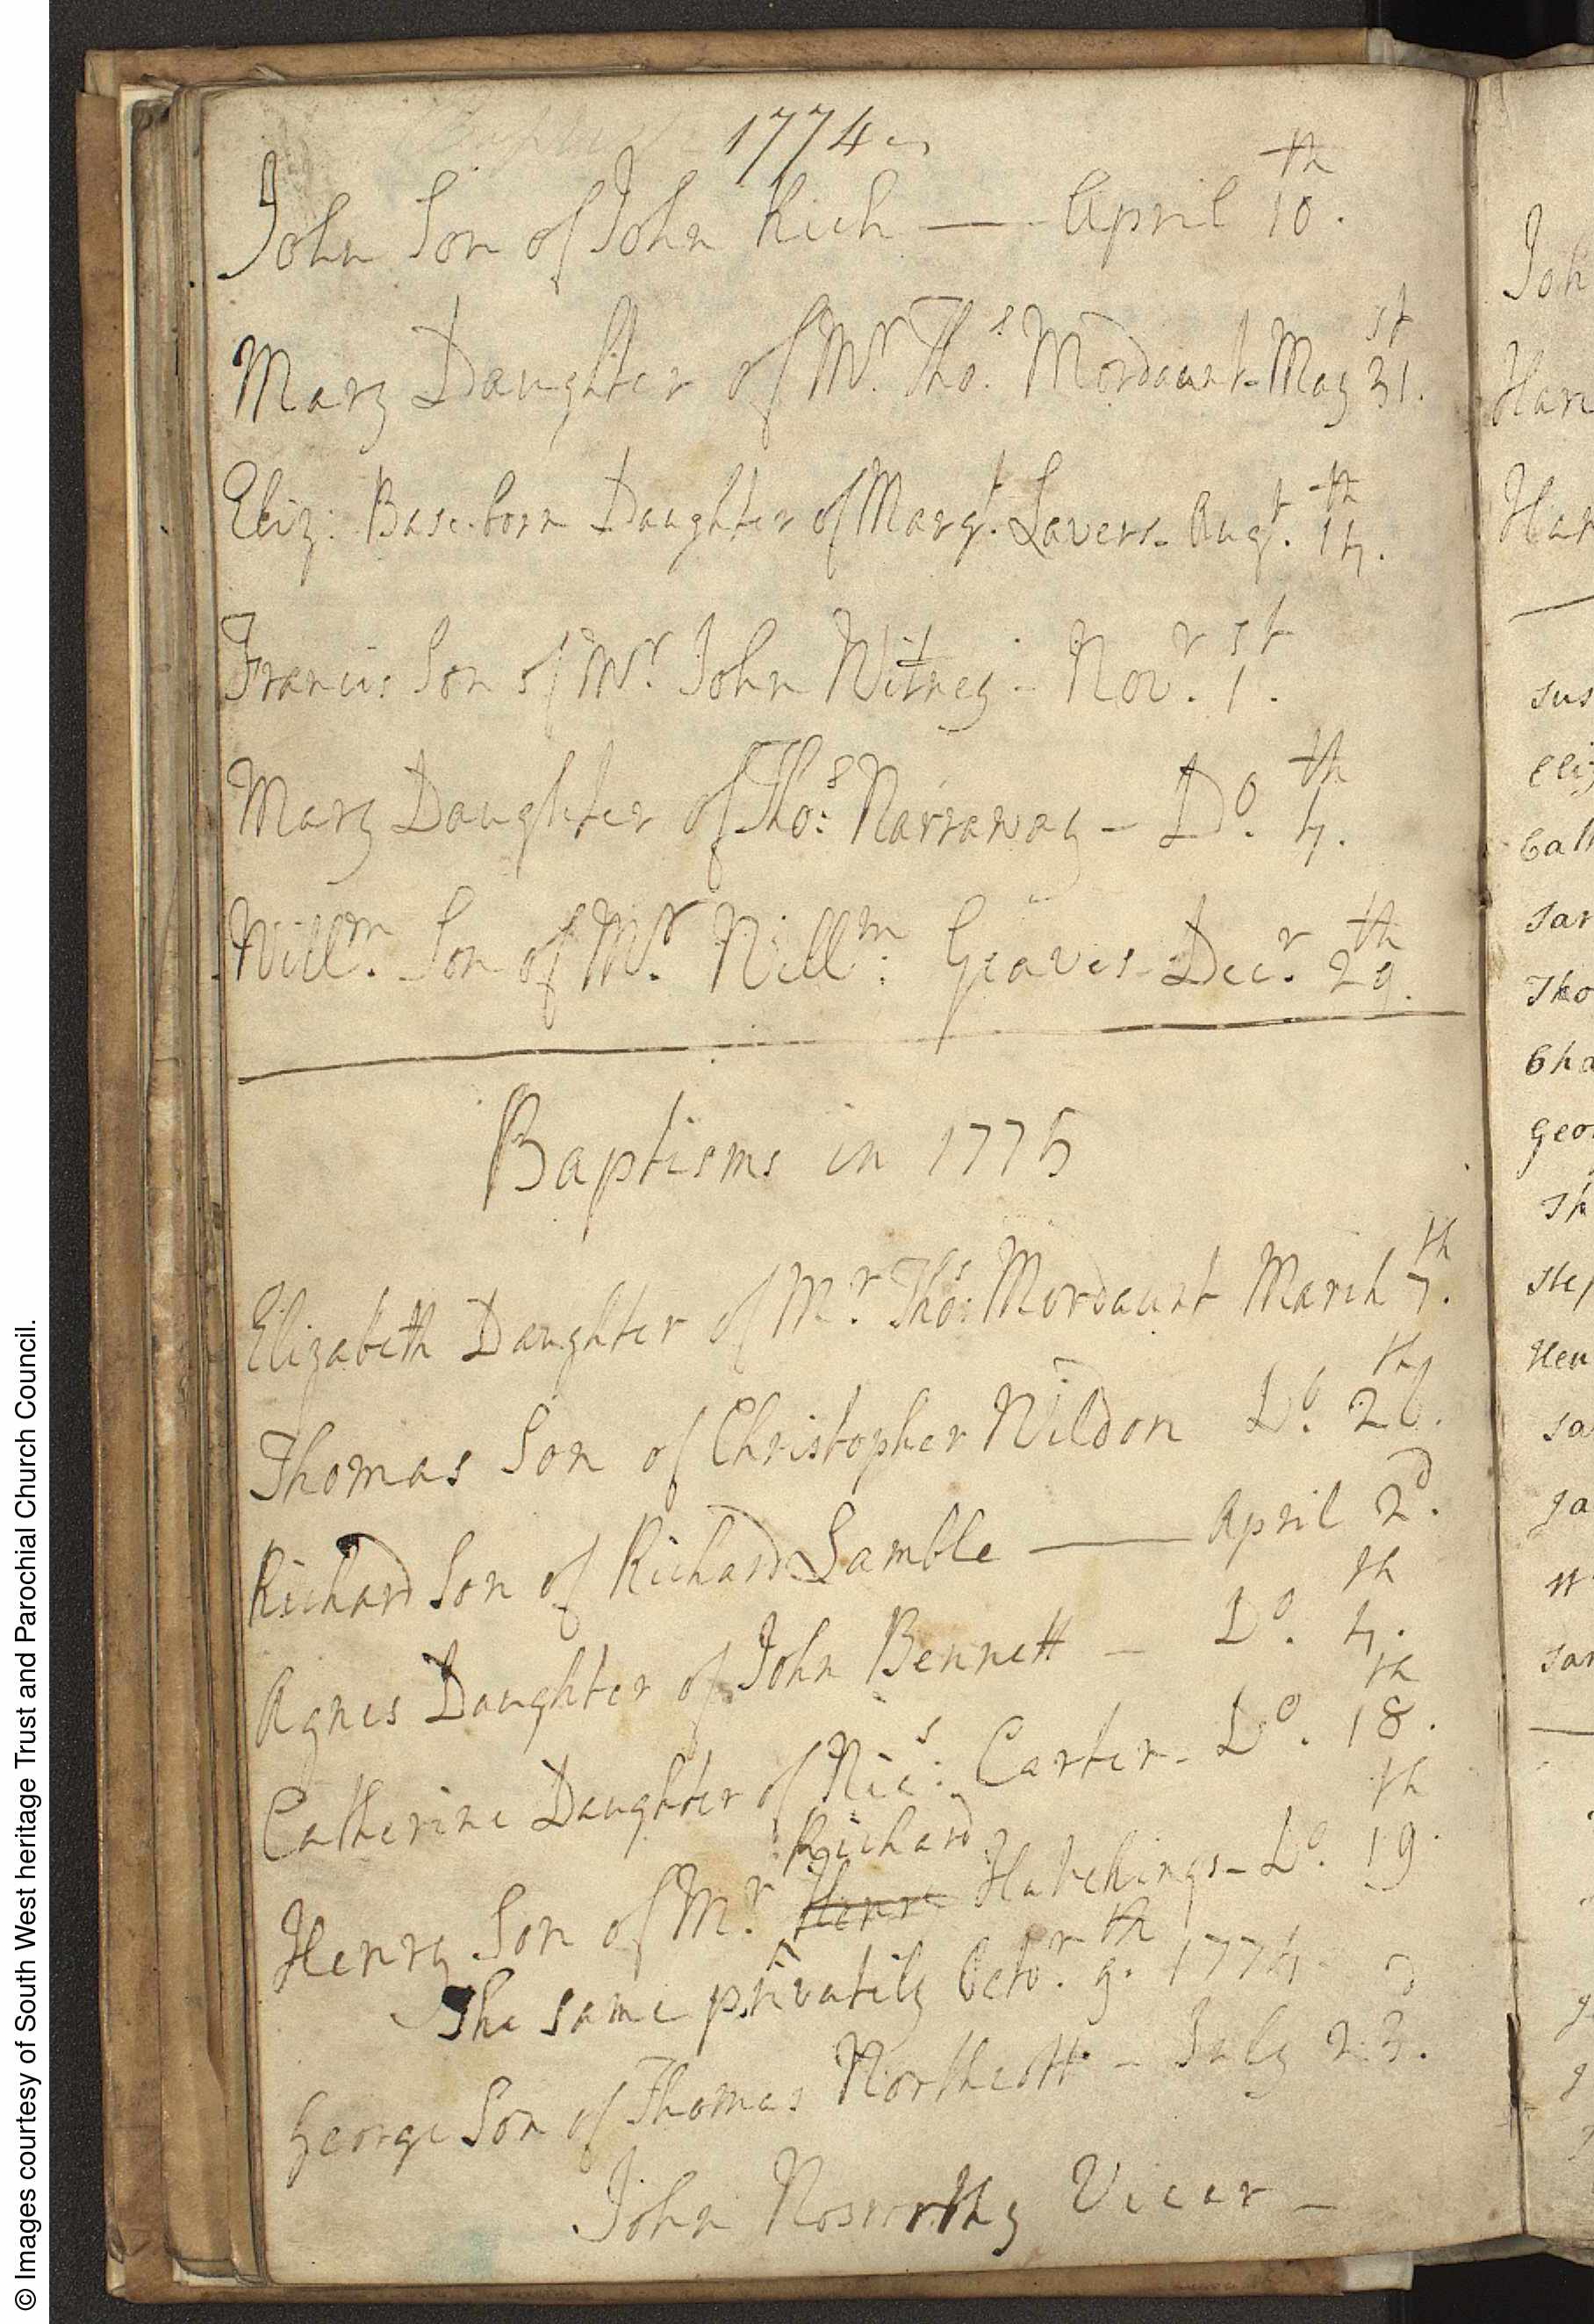 1774
John Son of John Rich — April 10th.
Mary Daughter of Mr. Thos. Mordaunt - May 31st.
Eliz: Base-born Daughter of Margt. Lavers - Augt. 14th.
Francis Son of Mr. John Witney - Novr. 1st.
Mary Daughter of Thos: Narraway - Do. 4th.
Willm. Son of Mr. Willm: Graves - Decr. 29th.
Baptisms in 1775
Elizabeth Daughter of Mr. Thos: Mordaunt March 7th.
Thomas Son of Christopher Wildon Do. 26th.
Richard Son of Richard Lamble — April 2d.
Agnes Daughter of John Bennett - Do. 4th.
Catherine Daughter of Nics: Carter - Do. 18th.
Richard
Henry Son of Mr. Henry Hutchings - Do. 19th.
The same privately Octor. 9th. 1774.
George Son of Thomas Northcott - July 23d.
John Nosworthy Vicar -
Joh
Har
Har
sus
Eliz
Cath
sar
Tho
Cha
Geo
Th
Step
Hen
sa
Ja
sar
© Images courtesy of South West heritage Trust and Parochial Church Council.